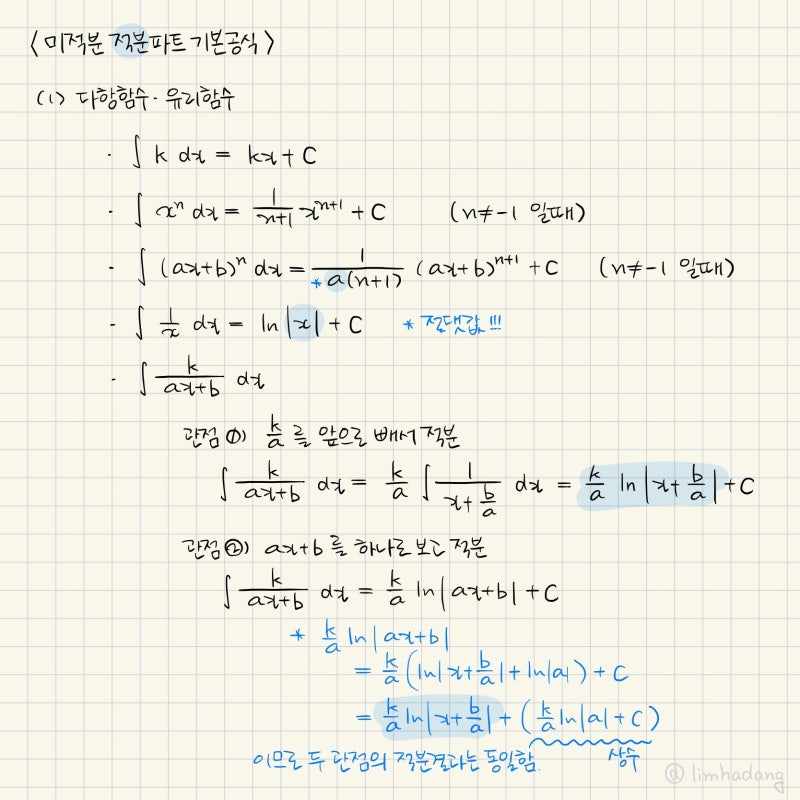 < 미적분 적분파트 기본공식 >
(1) 다항함수 · 유리함수
· ∫ k dx = kx + C
· ∫ xⁿ dx = 1/(n+1) xⁿ⁺¹ + C (n≠-1 일때)
· ∫ (ax+b)ⁿ dx = 1/(*a(n+1)) (ax+b)ⁿ⁺¹ + C (n≠-1 일때)
· ∫ 1/x dx = ln|x| + C * 절댓값!!!
· ∫ k/(ax+b) dx
관점①) k/a 를 앞으로 빼서 적분
∫ k/(ax+b) dx = k/a ∫ 1/(x+b/a) dx = k/a ln|x+b/a| + C
관점②) ax+b 를 하나로 보고 적분
∫ k/(ax+b) dx = k/a ln|ax+b| + C
* k/a ln|ax+b|
= k/a (ln|x+b/a| + ln|a|) + C
= k/a ln|x+b/a| + (k/a ln|a| + C)
상수
이므로 두 관점의 적분결과는 동일함.
@limhadang